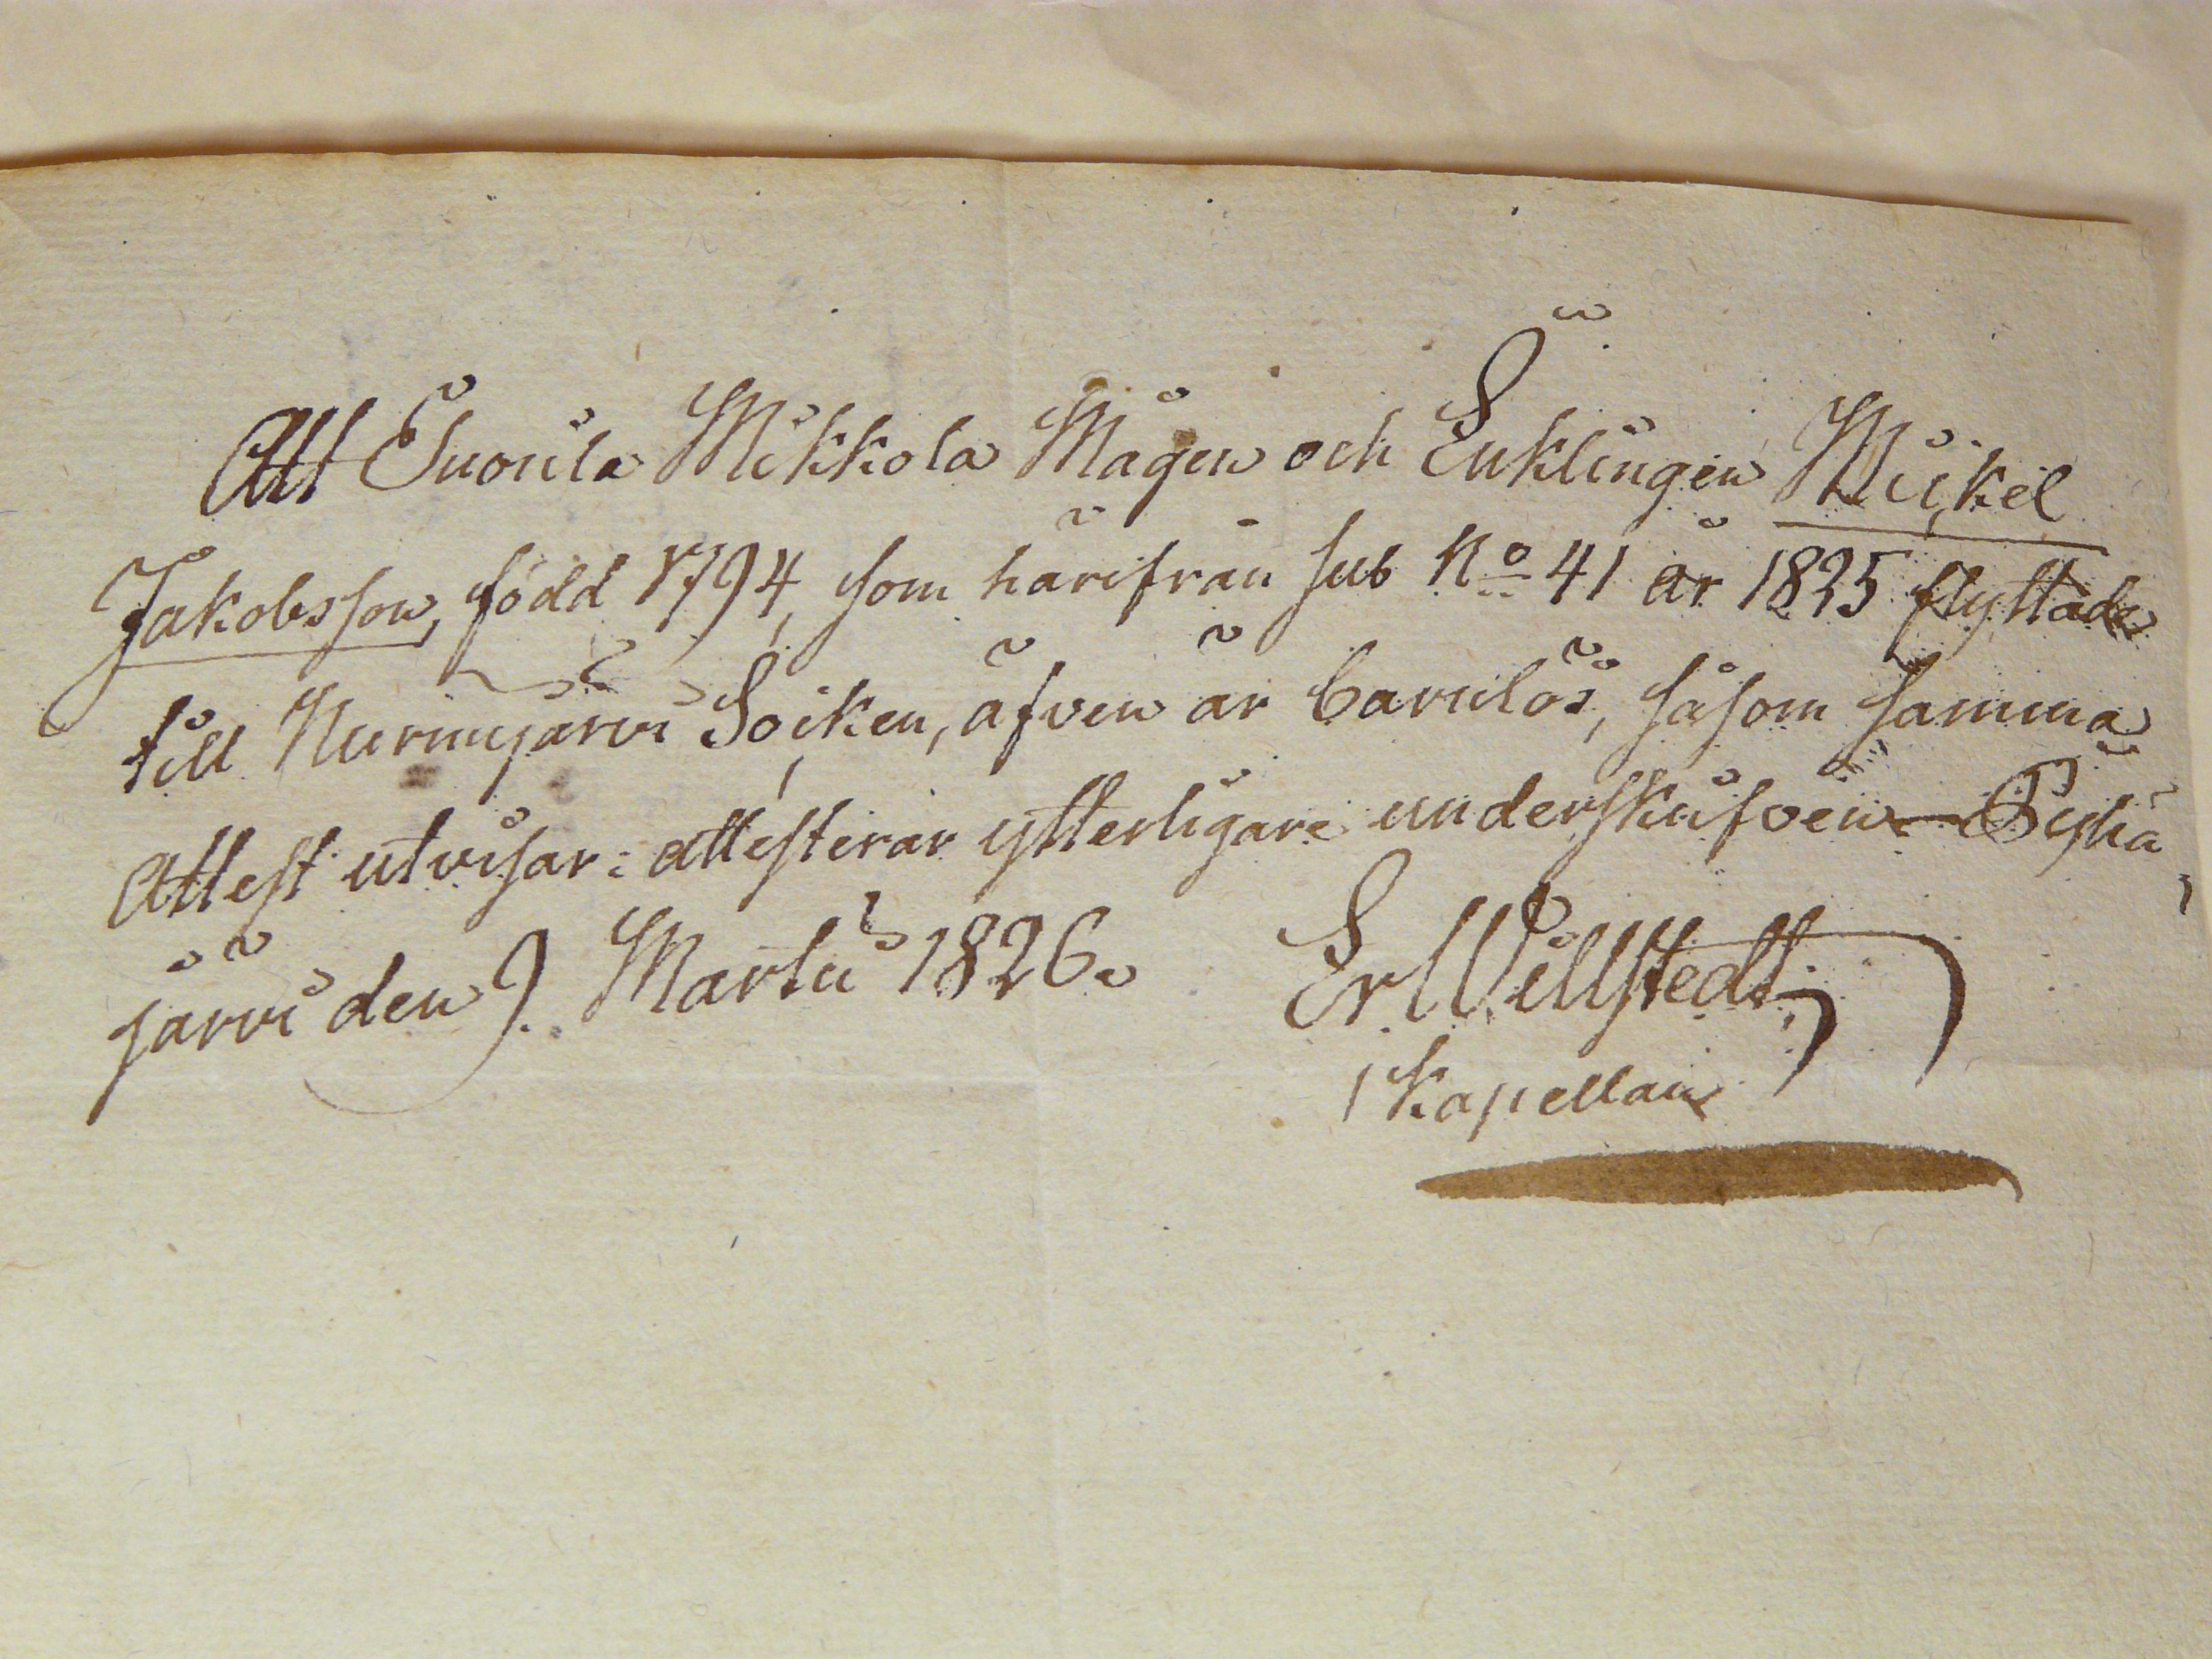 Att Enorila Mikkola Mågen och Enklingen Mickel
Jakobsson, född 1794, som härifrån sub No 41 år 1825 flyttade
till Nurmijärvi Socken, äfven är barnlös, såsom samma
Attest utvisar: attesterar ytterligare underskrifven Pyhä
järvi den 9. Martii 1826.
Er Willstedt
Kapellan